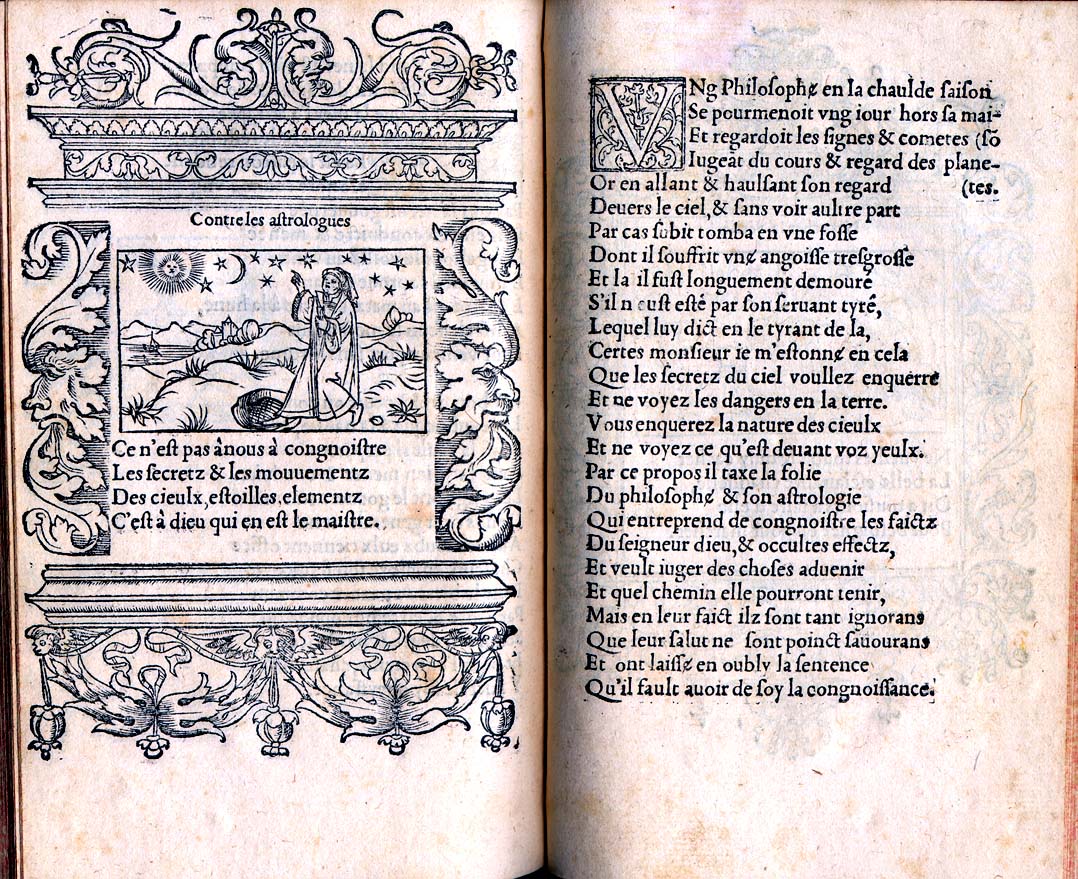 Contre les astrologues
Ce n'est pas à nous à congnoistre
Les secretz & les mouuementz
Des cieulx, estoilles, elementz
C'est à dieu qui en est le maistre.
VNg Philosophe en la chaulde saison
Se pourmenoit vng iour hors sa mai-
Et regardoit les signes & cometes (sõ
Iugeãt du cours & regard des plane-
Or en allant & haulsant son regard (tes.
Deuers le ciel, & sans voir aultre part
Par cas subit tomba en vne fosse
Dont il souffrit vne angoisse tresgrosse
Et la il fust longuement demouré
S'il n eust esté par son seruant tyré,
Lequel luy dict en le tyrant de la,
Certes monsieur ie m'estonne en cela
Que les secretz du ciel voullez enquerre
Et ne voyez les dangers en la terre.
Vous enquerez la nature des cieulx
Et ne voyez ce qu'est deuant voz yeulx.
Par ce propos il taxe la folie
Du philosophe & son astrologie
Qui entreprend de congnoistre les faictz
Du seigneur dieu, & occultes effectz,
Et veult iuger des choses aduenir
Et quel chemin elle pourront tenir,
Mais en leur faict ilz sont tant ignorans
Que leur salut ne sont poinct sauourans
Et ont laisse en oubly la sentence
Qu'il fault auoir de soy la congnoissance.